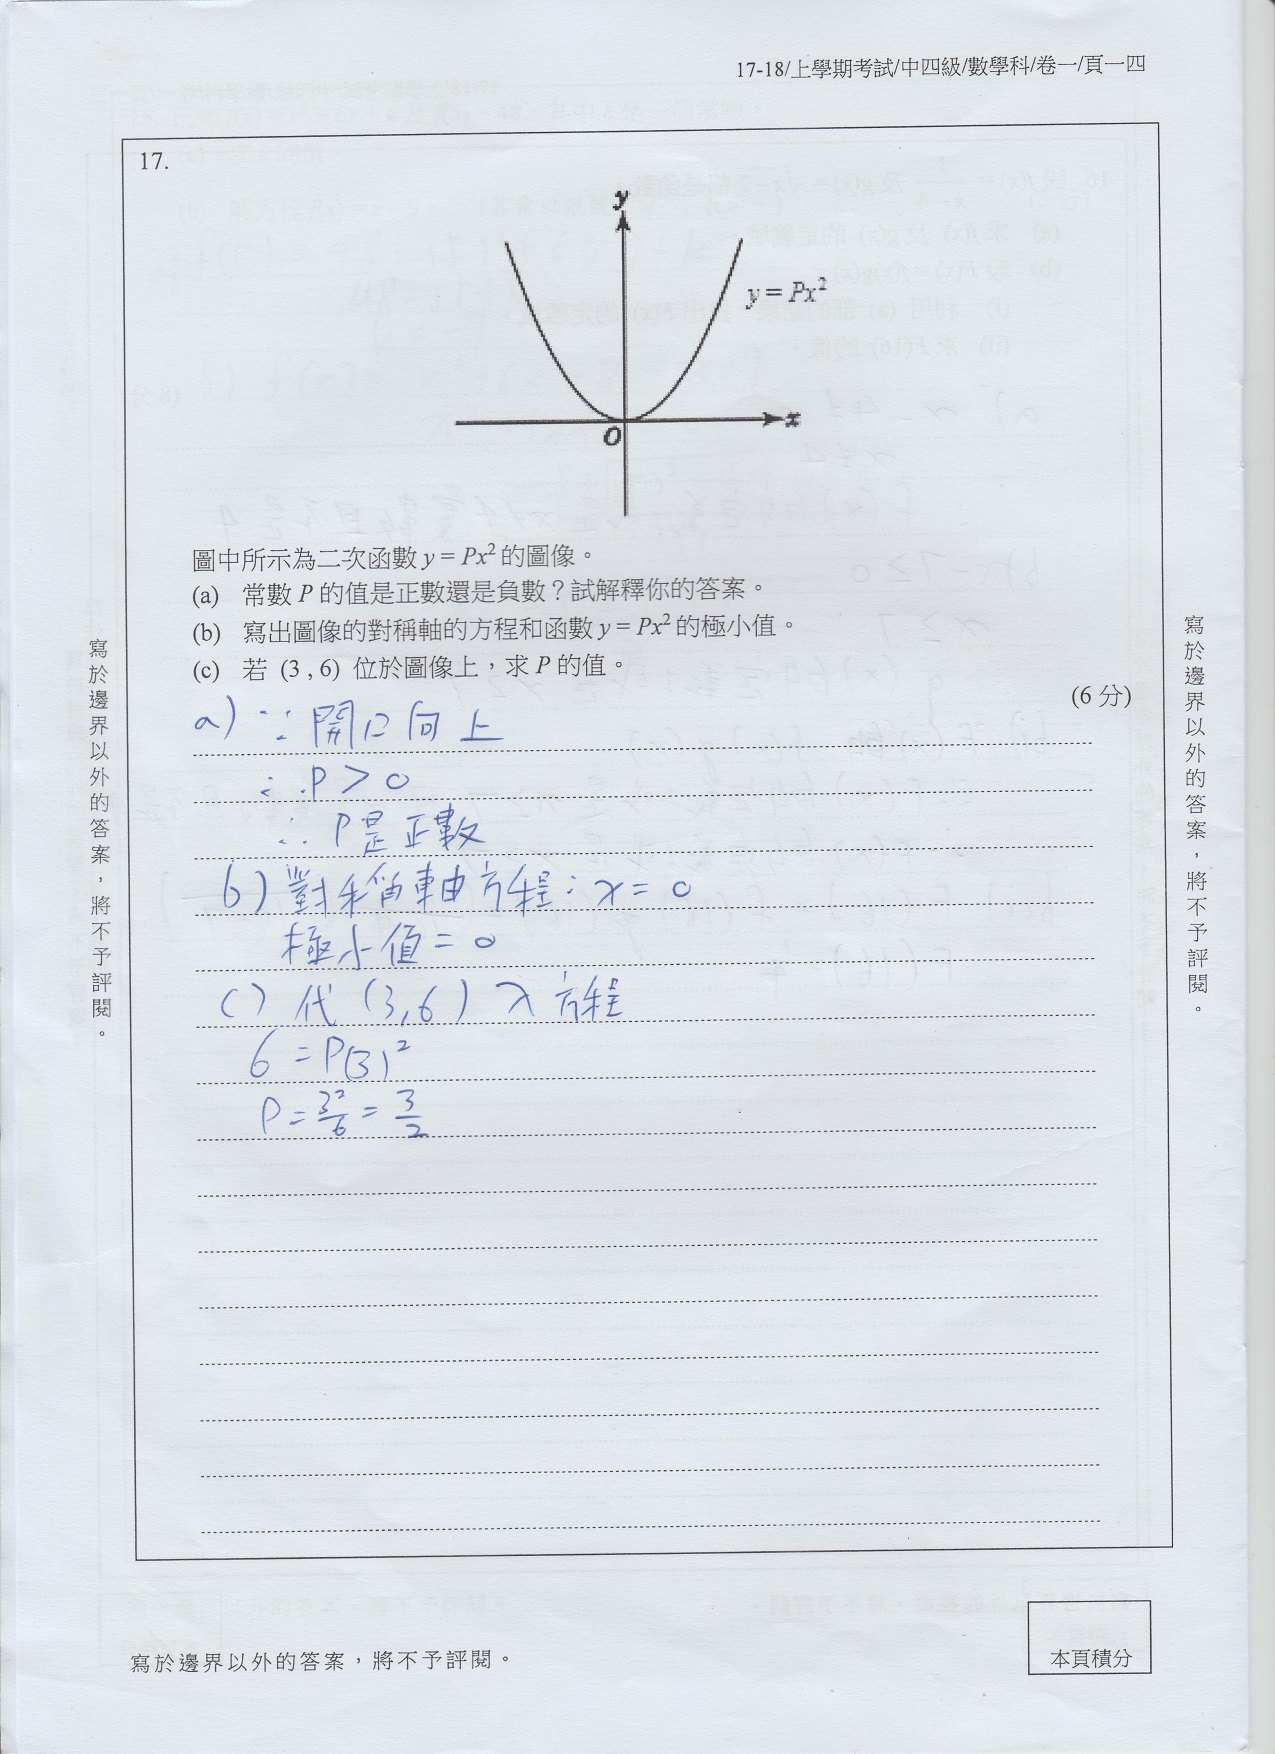 17-18/上學期考試/中四級/數學科/卷一/頁一四
17.
y
y = Px²
O
x
圖中所示為二次函數 y = Px² 的圖像。
(a) 常數 P 的值是正數還是負數？試解釋你的答案。
(b) 寫出圖像的對稱軸的方程和函數 y = Px² 的極小值。
(c) 若 (3 , 6) 位於圖像上，求 P 的值。
(6 分)
a) ∵ 開口向上
∴ P > 0
∴ P是正數
b) 對稱軸方程：x = 0
極小值 = 0
c) 代 (3,6) 入方程
6 = P(3)²
P = 3²/6 = 3/2
寫於邊界以外的答案，將不予評閱。
寫於邊界以外的答案，將不予評閱。
寫於邊界以外的答案，將不予評閱。
本頁積分